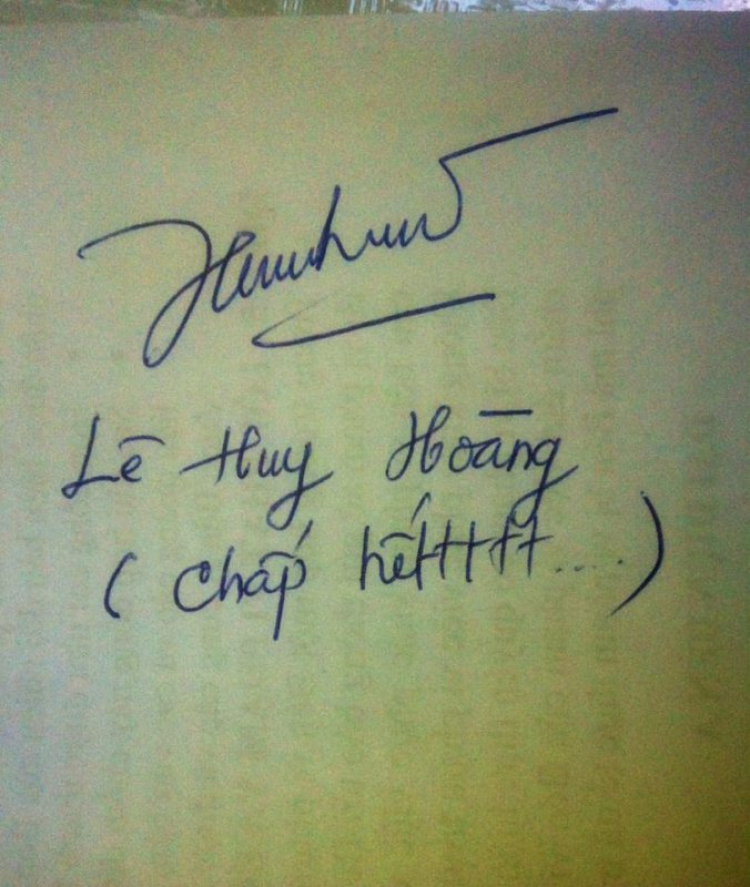 Lê Huy Hoàng
( Chấp hếtttt.....)